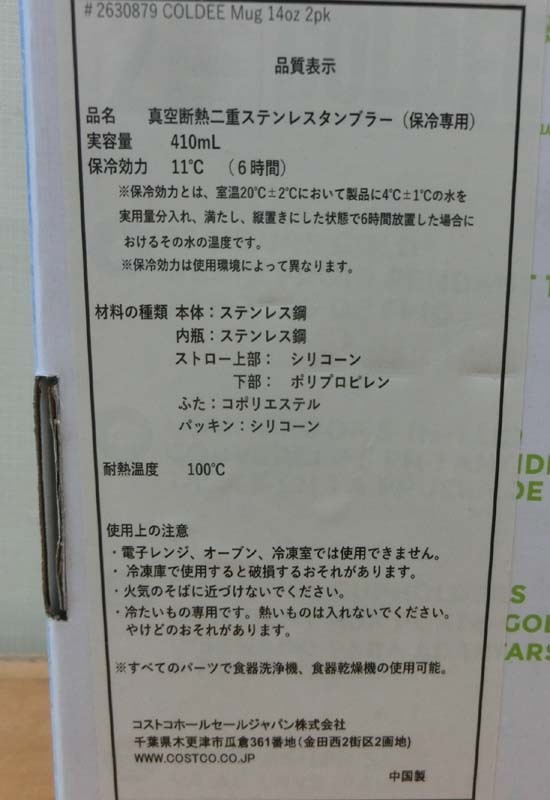 # 2630879 COLDEE Mug 14oz 2pk
品質表示
品名　真空断熱二重ステンレスタンブラー（保冷専用）
実容量　410mL
保冷効力　11℃　（６時間）
※保冷効力とは、室温20℃±2℃において製品に4℃±1℃の水を
実用量分入れ、満たし、縦置きにした状態で6時間放置した場合に
おけるその水の温度です。
※保冷効力は使用環境によって異なります。
材料の種類 本体：ステンレス鋼
内瓶：ステンレス鋼
ストロー上部：　シリコーン
下部：　ポリプロピレン
ふた：コポリエステル
パッキン：シリコーン
耐熱温度　100℃
使用上の注意
・電子レンジ、オーブン、冷凍室では使用できません。
・ 冷凍庫で使用すると破損するおそれがあります。
・火気のそばに近づけないでください。
・冷たいもの専用です。熱いものは入れないでください。
やけどのおそれがあります。
※すべてのパーツで食器洗浄機、食器乾燥機の使用可能。
コストコホールセールジャパン株式会社
千葉県木更津市瓜倉361番地（金田西2街区2画地）
WWW.COSTCO.CO.JP
中国製